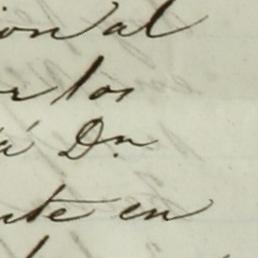 ion al
r los
á Dn
nte en